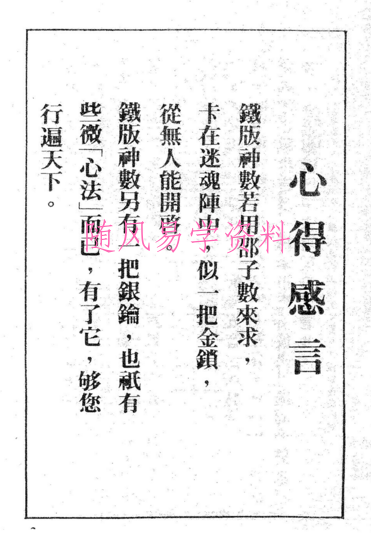 心得感言
鐵版神數若用邵子數來求，
卡在迷魂陣中，似一把金鎖，
從無人能開啓。
鐵版神數另有一把銀鑰，也祇有
些微「心法」而已，有了它，够您
行遍天下。
随风易学资料